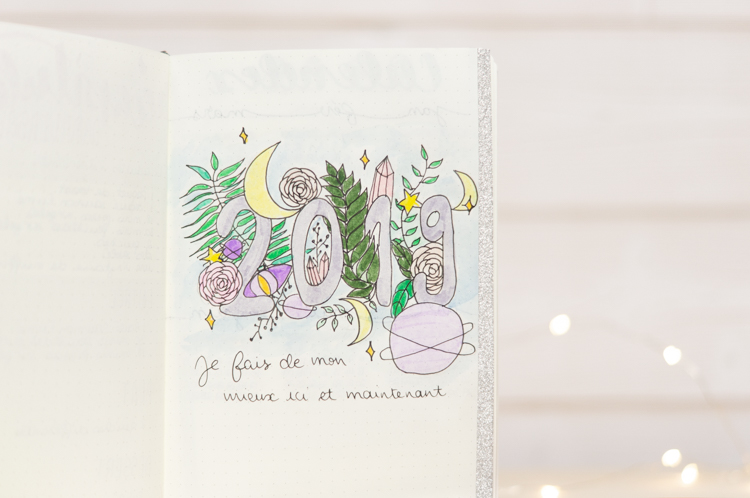 2019
Je fais de mon
mieux ici et maintenant